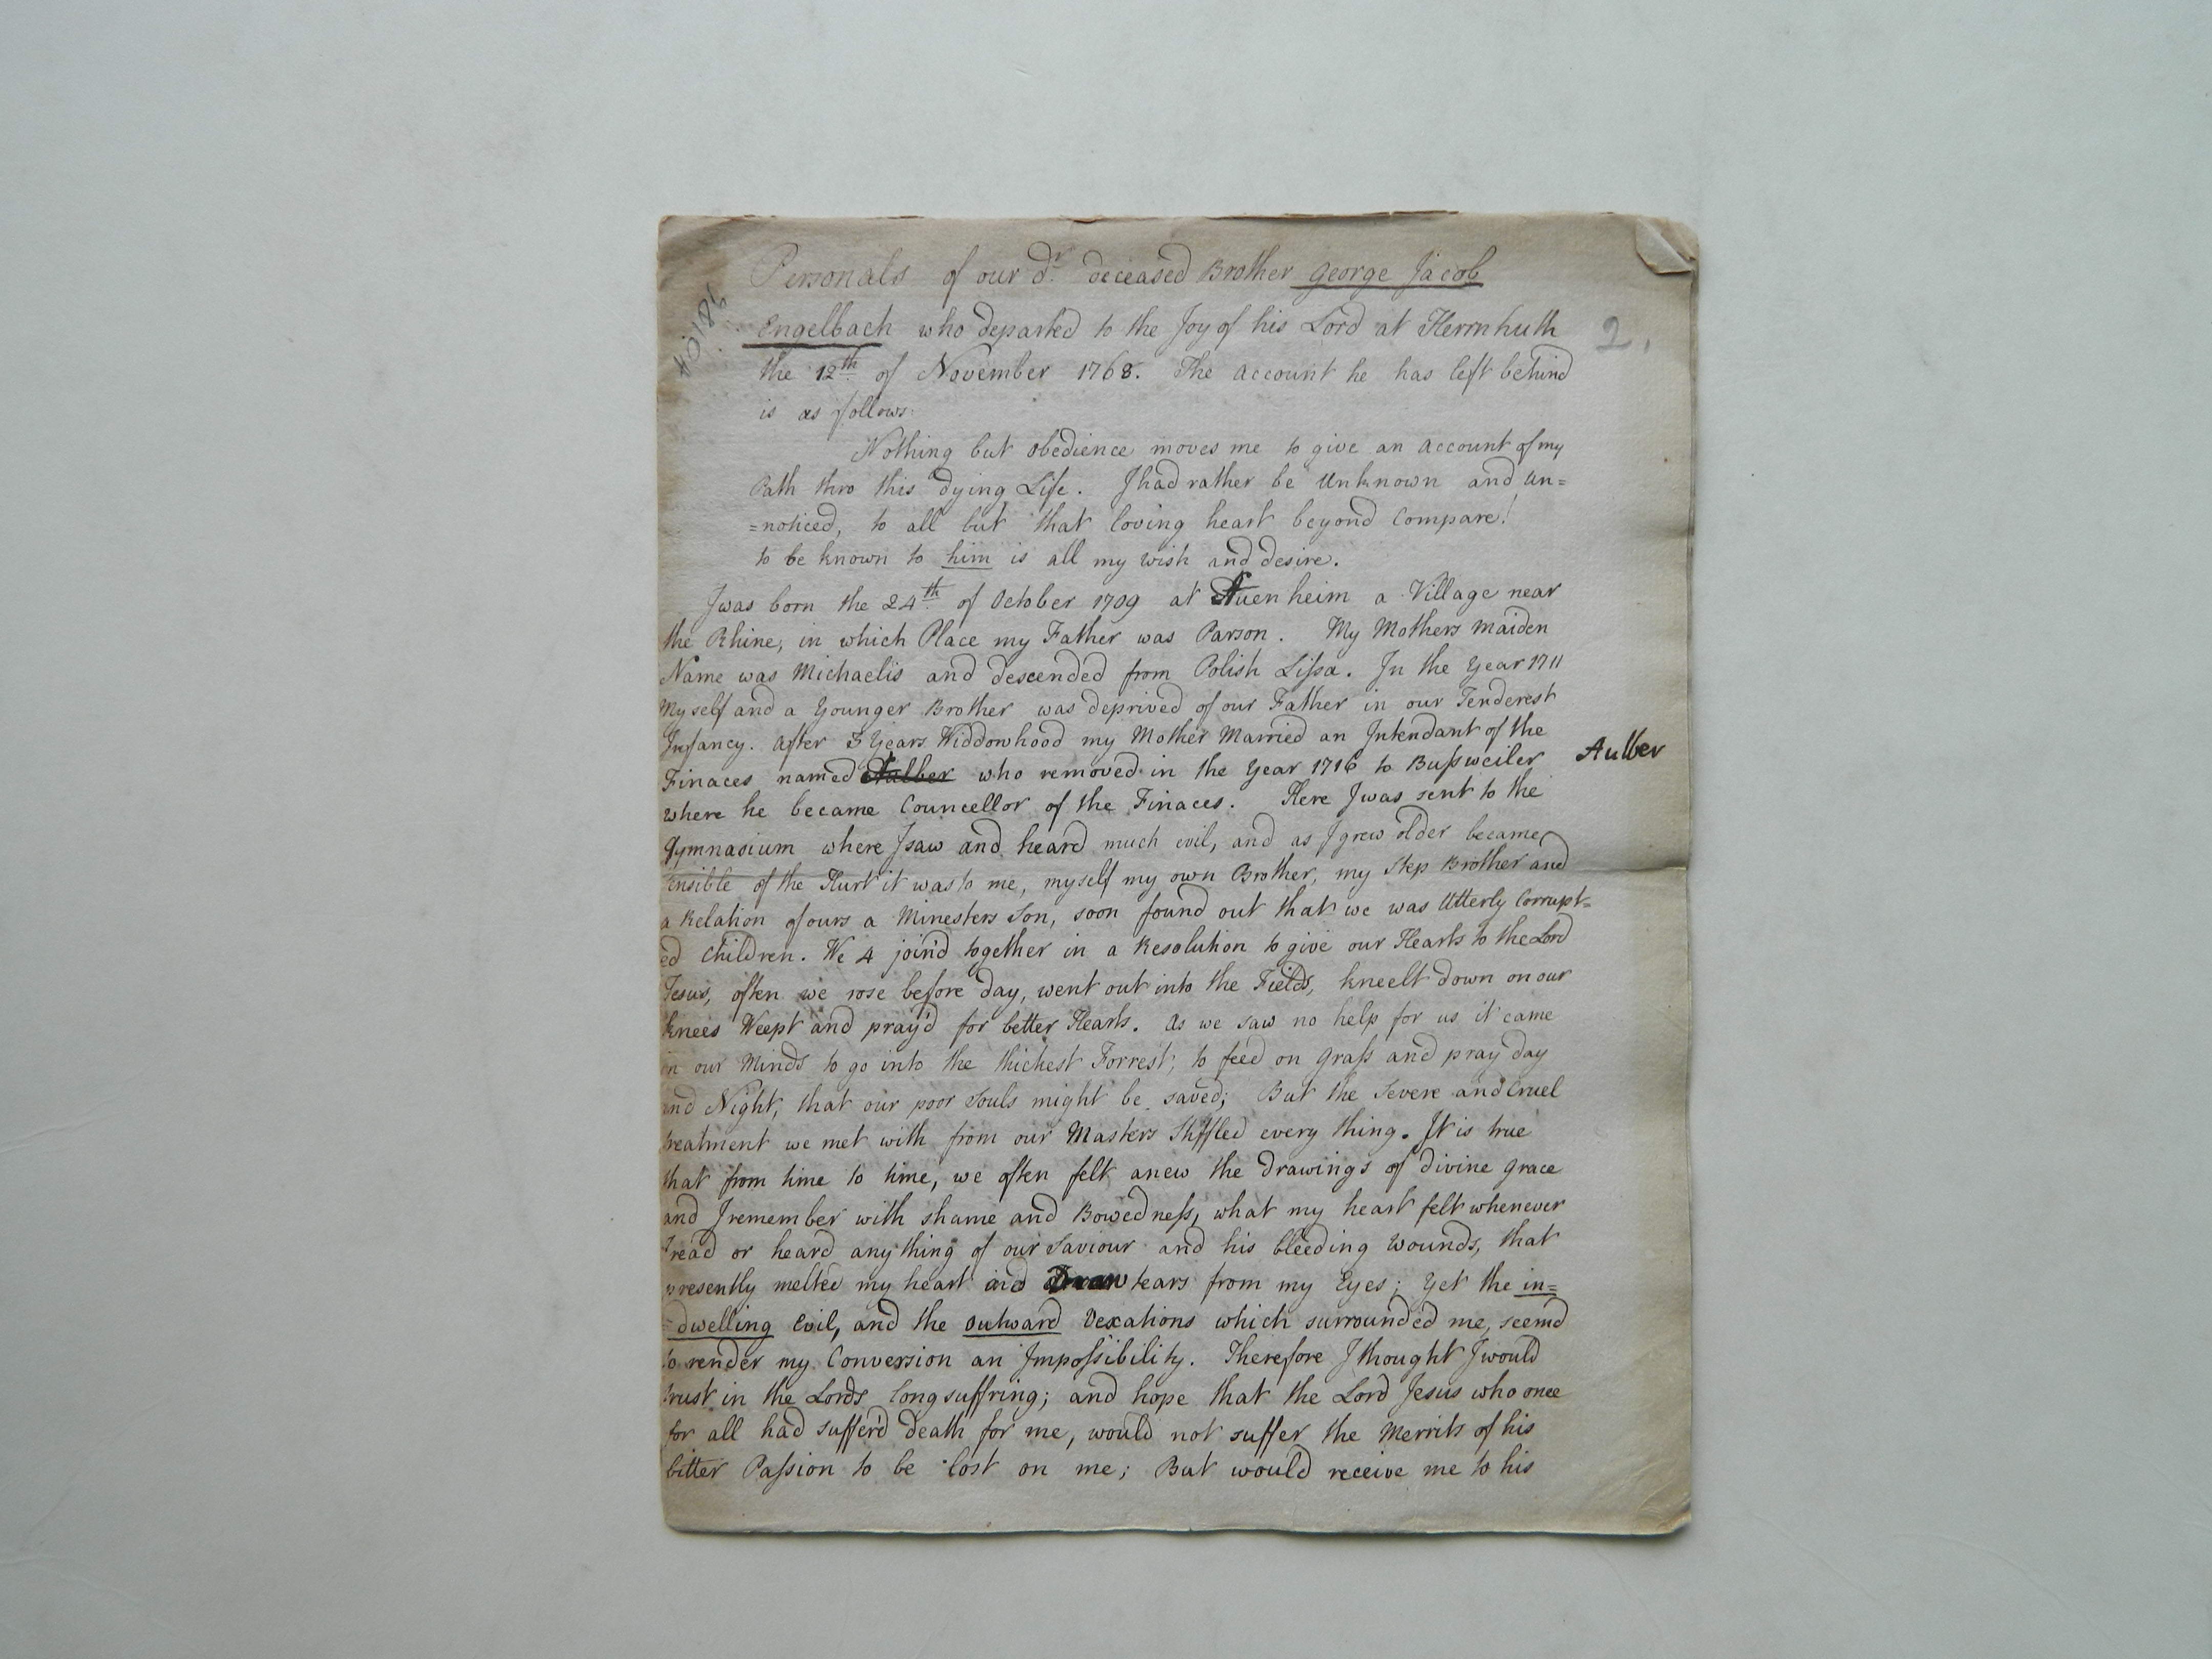 Personals of our dr. deceased Brother George Jacob
Engelbach who departed to the Joy of his Lord at Herrnhuth
2.
the 12th of November 1768. The Account he has left behind
is as follows.
Nothing but obedience moves me to give an Account of my
Path thro this dying Life. I had rather be Unknown and un=
=noticed, to all but that loving heart beyond Compare!
to be known to him is all my wish and desire.
I was born the 24th of October 1709 at Auenheim a Village near
the Rhine, in which Place my Father was Parson. My Mothers maiden
Name was Michaelis and descended from Polish Lissa. In the Year 1711
Myself and a Younger Brother was deprived of our Father in our Tenderest
Infancy. After 3 Years Widdowhood my Mother Married an Intendant of the
Finaces named Aulber who removed in the Year 1716 to Bussweiler
Aulber
where he became Councellor of the Finaces. Here I was sent to the
Gymnasium where I saw and heard much evil, and as I grew older became
sensible of the Hurt it was to me, myself my own Brother, my Step Brother and
a Relation of ours a Minesters Son, soon found out that we was Utterly Corrupt=
ed Children. We 4 join'd together in a Resolution to give our Hearts to the Lord
Jesus, often we rose before day, went out into the Fields, kneelt down on our
knees Weept and pray'd for better Hearts. As we saw no help for us it came
in our Minds to go into the thichest Forrest, to feed on Grass and pray day
and Night, that our poor Souls might be saved; But the Severe and Cruel
treatment we met with from our Masters Stiffled every thing. It is true
that from time to time, we often felt anew the Drawings of divine Grace
and I remember with shame and Bowedness, what my heart felt whenever
I read or heard any thing of our Saviour and his bleeding Wounds, that
presently melted my heart and Draw tears from my Eyes; Yet the in=
=dwelling Evil, and the outward Vexations which surrounded me, seemd
to render my Conversion an Impossibility. Therefore I thought I would
trust in the Lords longsuffring; and hope that the Lord Jesus who once
for all had sufferd Death for me, would not suffer the Merrits of his
bitter Passion to be lost on me; But would receive me to his